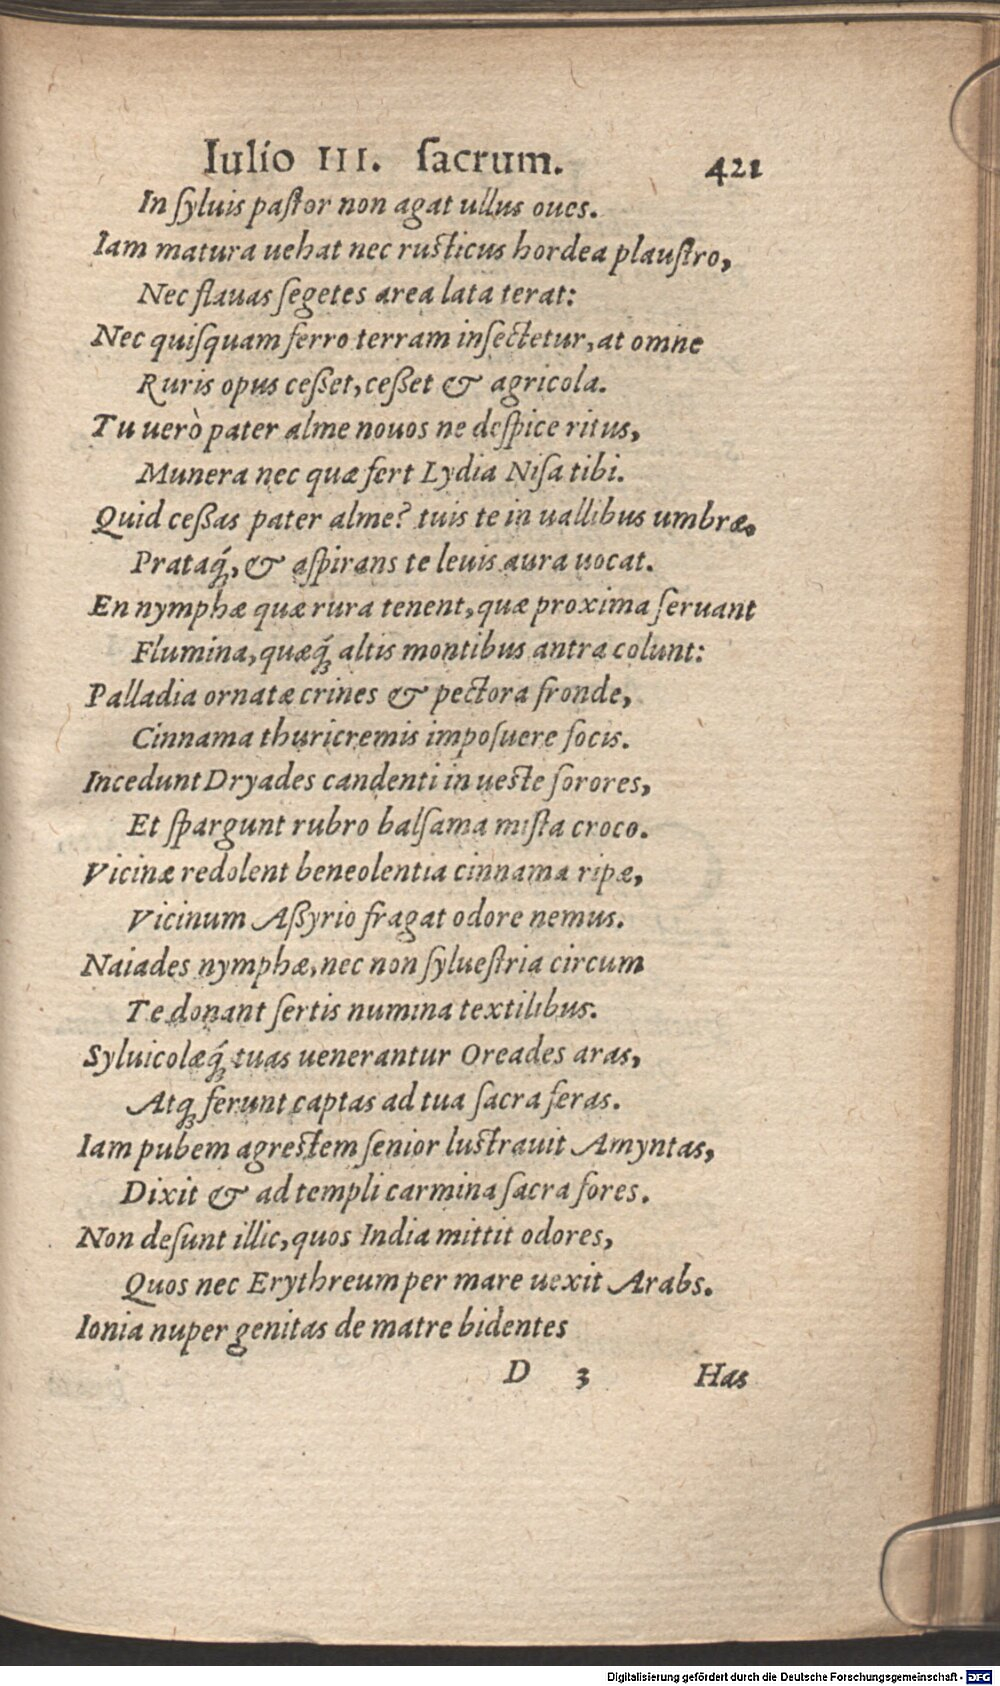 Iulio III. ſacrum. 421
In ſyluis paſtor non agat ullus oues.
Iam matura uehat nec ruſticus hordea plauſtro,
Nec flauas ſegetes area lata terat:
Nec quiſquam ferro terram inſectetur, at omne
Ruris opus ceßet, ceßet & agricola.
Tu uerò pater alme nouos ne deſpice ritus,
Munera nec quæ fert Lydia Niſa tibi.
Quid ceßas pater alme? tuis te in uallibus umbræ,
Prataq́;, & aſpirans te leuis aura uocat.
En nymphæ quæ rura tenent, quæ proxima ſeruant
Flumina, quæq́; altis montibus antra colunt:
Palladia ornatæ crines & pectora fronde,
Cinnama thuricremis impoſuere focis.
Incedunt Dryades candenti in ueſte ſorores,
Et ſpargunt rubro balſama miſta croco.
Vicinæ redolent beneolentia cinnama ripæ,
Vicinum Aßyrio fragat odore nemus.
Naiades nymphæ, nec non ſylueſtria circum
Te donant ſertis numina textilibus.
Syluicolæq́; tuas uenerantur Oreades aras,
Atq; ferunt captas ad tua ſacra feras.
Iam pubem agreſtem ſenior luſtrauit Amyntas,
Dixit & ad templi carmina ſacra fores.
Non deſunt illic, quos India mittit odores,
Quos nec Erythreum per mare uexit Arabs.
Ionia nuper genitas de matre bidentes
D 3 Has
Digitalisierung gefördert durch die Deutsche Forschungsgemeinschaft - DFG